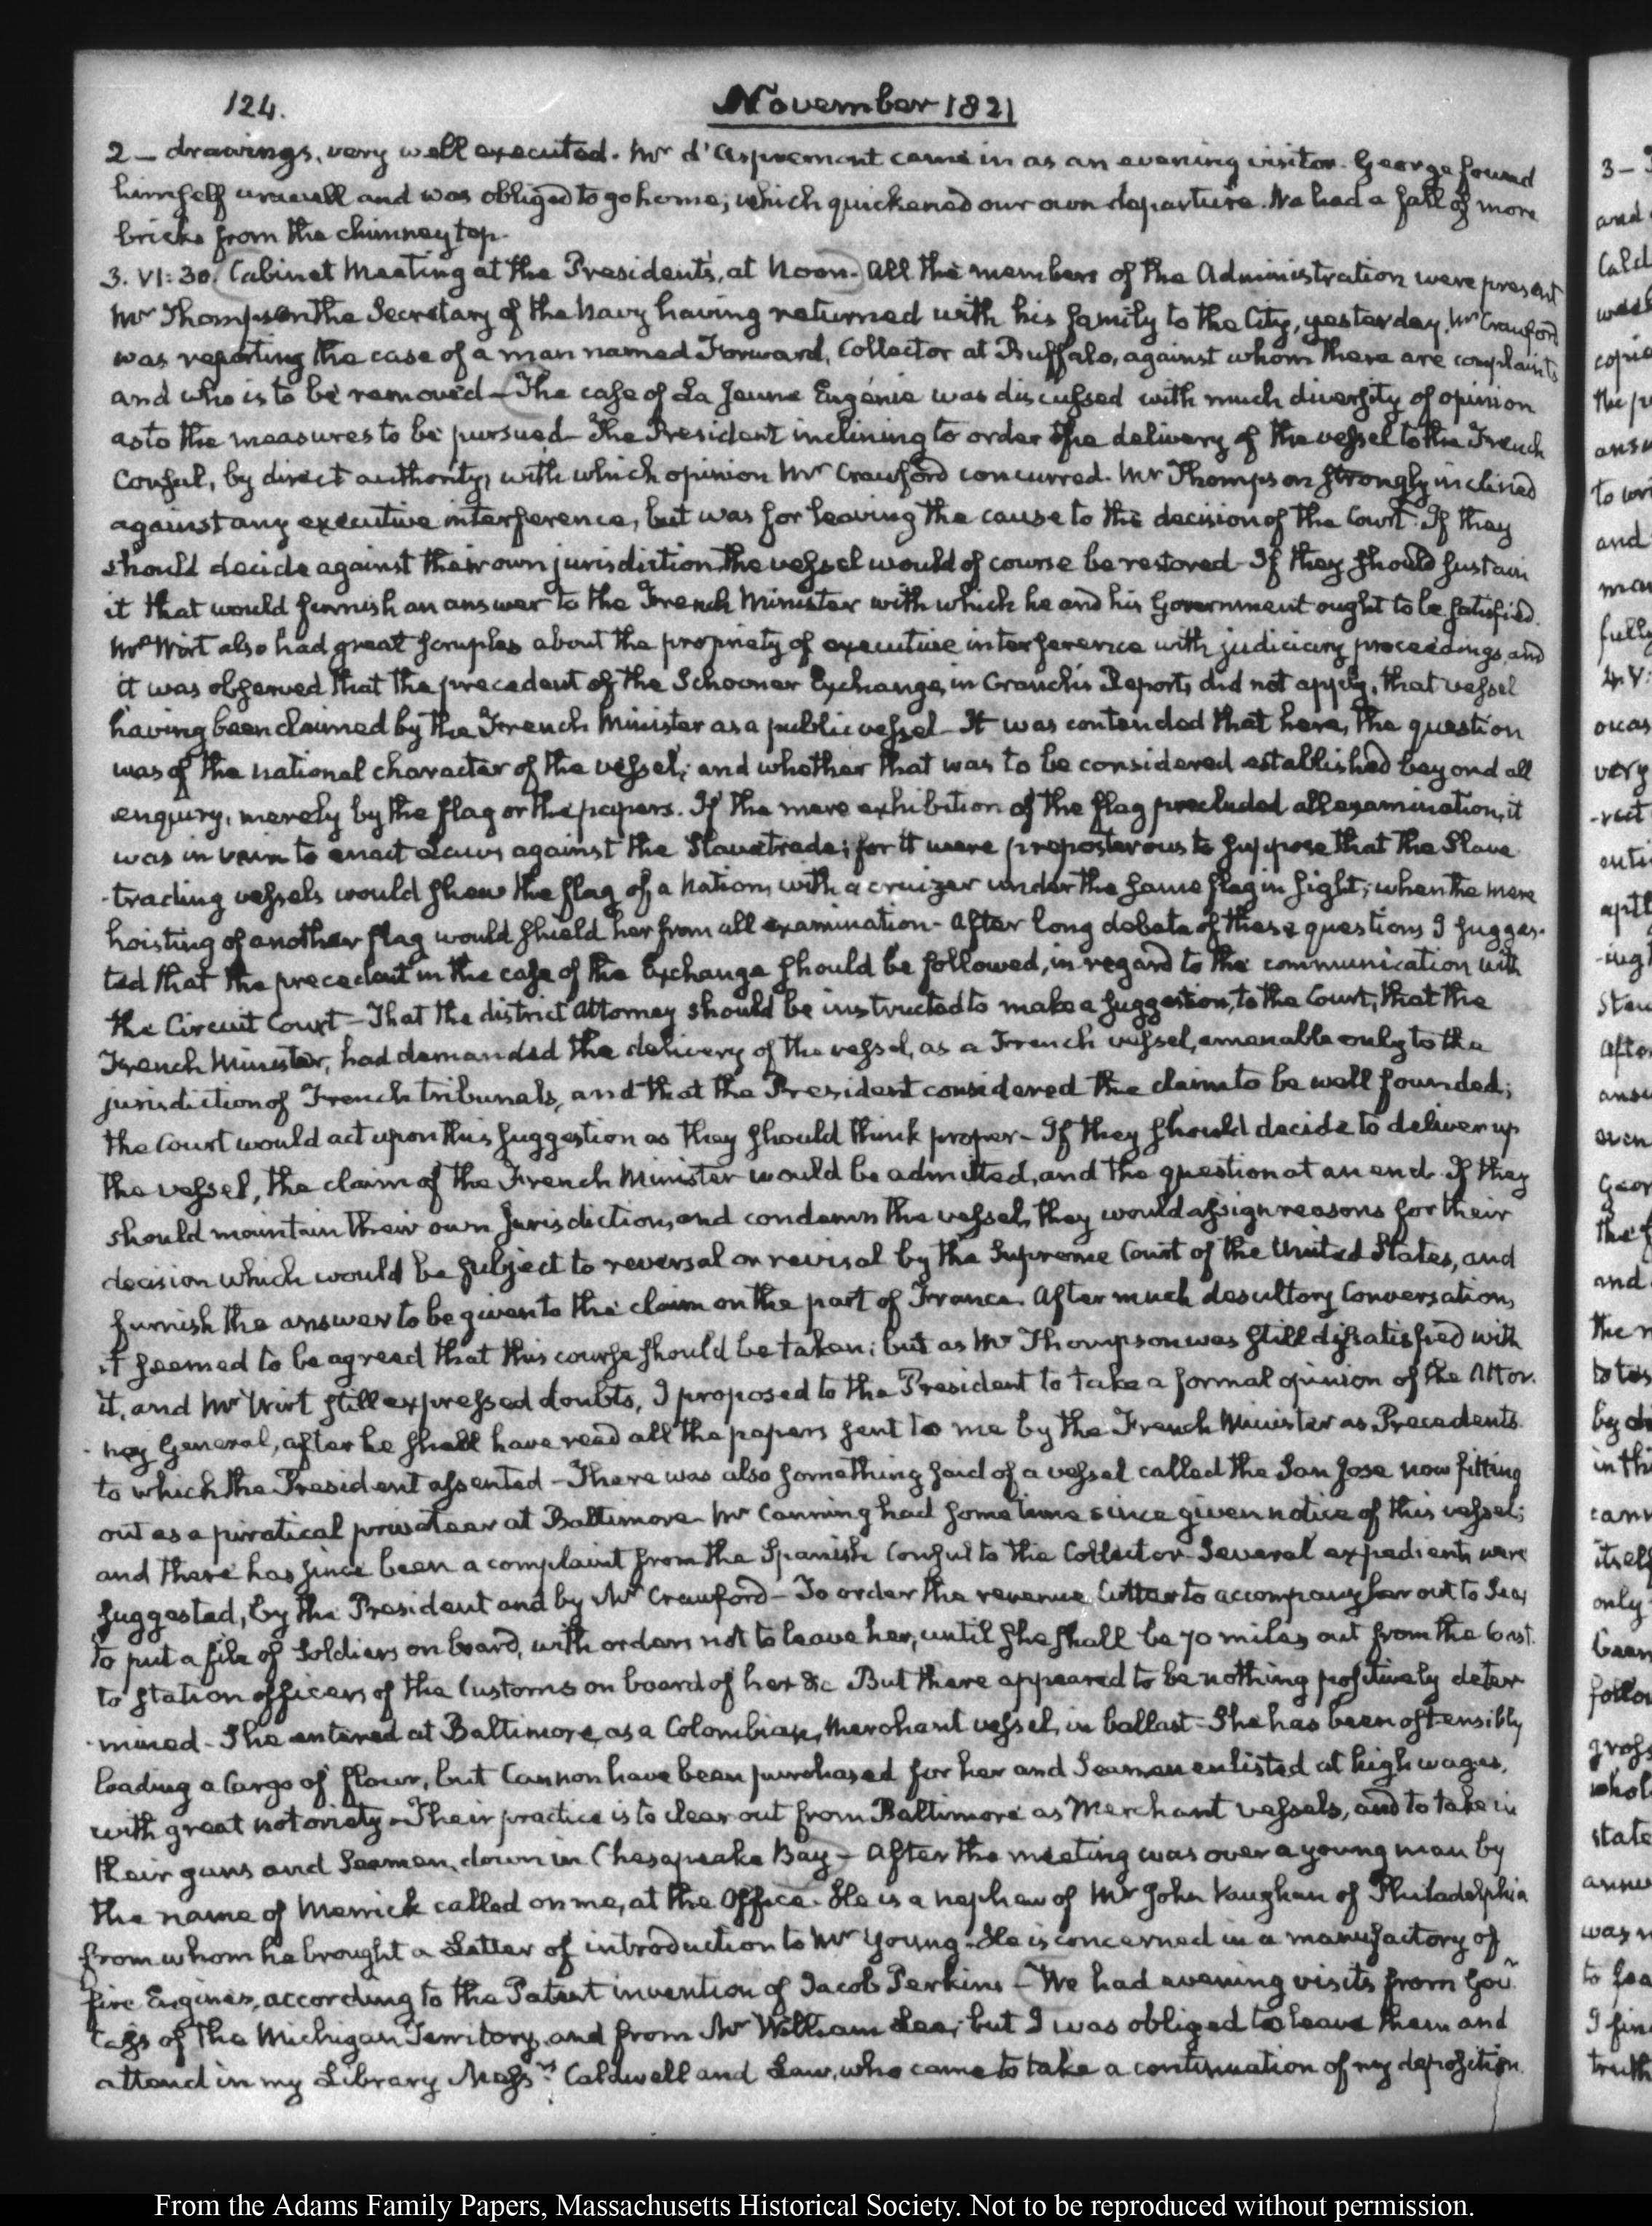 124.
November 1821
2 — drawings, very well executed. Mr d'Aspremont came in as an evening visitor. George found
himself unwell and was obliged to go home; which quickened our own departure. We had a fall of more
bricks from the chimney top.
3. VI:30. Cabinet Meeting at the President's, at Noon. All the members of the Administration were present
Mr Thompson the Secretary of the Navy having returned with his family to the City, yesterday. Mr Crawford
was reporting the case of a man named Forward, Collector at Buffalo, against whom there are complaints
and who is to be removed — The case of La Jeune Eugénie was discussed with much diversity of opinion
as to the measures to be pursued — The President inclining to order the delivery of the vessel to the French
Consul, by direct authority, with which opinion Mr Crawford concurred. Mr Thompson strongly inclined
against any executive interference, but was for leaving the cause to the decision of the Court. If they
should decide against their own jurisdiction the vessel would of course be restored — If they should sustain
it that would furnish an answer to the French Minister with which he and his Government ought to be satisfied.
Mr Wirt also had great scruples about the propriety of executive interference with judiciary proceedings and
it was observed that the precedent of the Schooner Exchange, in Cranch's Reports did not apply, that vessel
having been claimed by the French Minister as a public vessel — It was contended that here, the question
was of the national character of the vessel; and whether that was to be considered established beyond all
enquiry, merely by the flag or the papers. If the mere exhibition of the flag precluded all examination, it
was in vain to enact Laws against the Slave trade; for it were preposterous to suppose that the Slave
-trading vessels would shew the flag of a Nation, with a cruizer under the same flag in sight; when the mere
hoisting of another flag would shield her from all examination — After long debate of these questions I sugges-
ted that the precedent in the case of the Exchange should be followed, in regard to the communication with
the Circuit Court — That the district Attorney should be instructed to make a suggestion, to the Court, that the
French Minister, had demanded the delivery of the vessel, as a French vessel, amenable only to the
jurisdiction of French tribunals, and that the President considered the claim to be well founded;
the Court would act upon this suggestion as they should think proper — If they should decide to deliver up
the vessel, the claim of the French Minister would be admitted, and the question at an end. If they
should maintain their own Jurisdiction, and condemn the vessel, they would assign reasons for their
decision which would be subject to reversal or revisal by the Supreme Court of the United States, and
furnish the answer to be given to the claim on the part of France. After much desultory Conversation,
it seemed to be agreed that this course should be taken; but as Mr Thompson was still dissatisfied with
it, and Mr Wirt still expressed doubts, I proposed to the President to take a formal opinion of the Attor-
-ney General, after he shall have read all the papers sent to me by the French Minister as Precedents
to which the President assented — There was also something said of a vessel called the San Jose now fitting
out as a piratical privateer at Baltimore. Mr Canning had some time since given notice of this vessel;
and there has since been a complaint from the Spanish Consul to the Collector. Several expedients were
suggested, by the President and by Mr Crawford — To order the revenue Cutter to accompany her out to Sea,
to put a file of Soldiers on board, with orders not to leave her, until she shall be 70 miles out from the Coast.
to station officers of the Customs on board of her &c But there appeared to be nothing positively deter
-mined — She entered at Baltimore, as a Colombian, Merchant vessel, in ballast — She has been ostensibly
loading a Cargo of flour, but Cannon have been purchased for her and Seamen enlisted at high wages,
with great notoriety — Their practice is to clear out from Baltimore as Merchant vessels, and to take in
their guns and Seamen, down in Chesapeake Bay — After the meeting was over a young man by
the name of Merrick called on me, at the Office. He is a nephew of Mr John Vaughan of Philadelphia
from whom he brought a Letter of introduction to Mr Young. He is concerned in a manufactory of
fire Engines, according to the Patent invention of Jacob Perkins — We had evening visits from Govr
Cass of the Michigan Territory, and from Mr William Lee; but I was obliged to leave them and
attend in my Library Messrs Caldwell and Law, who came to take a continuation of my deposition.
From the Adams Family Papers, Massachusetts Historical Society. Not to be reproduced without permission.